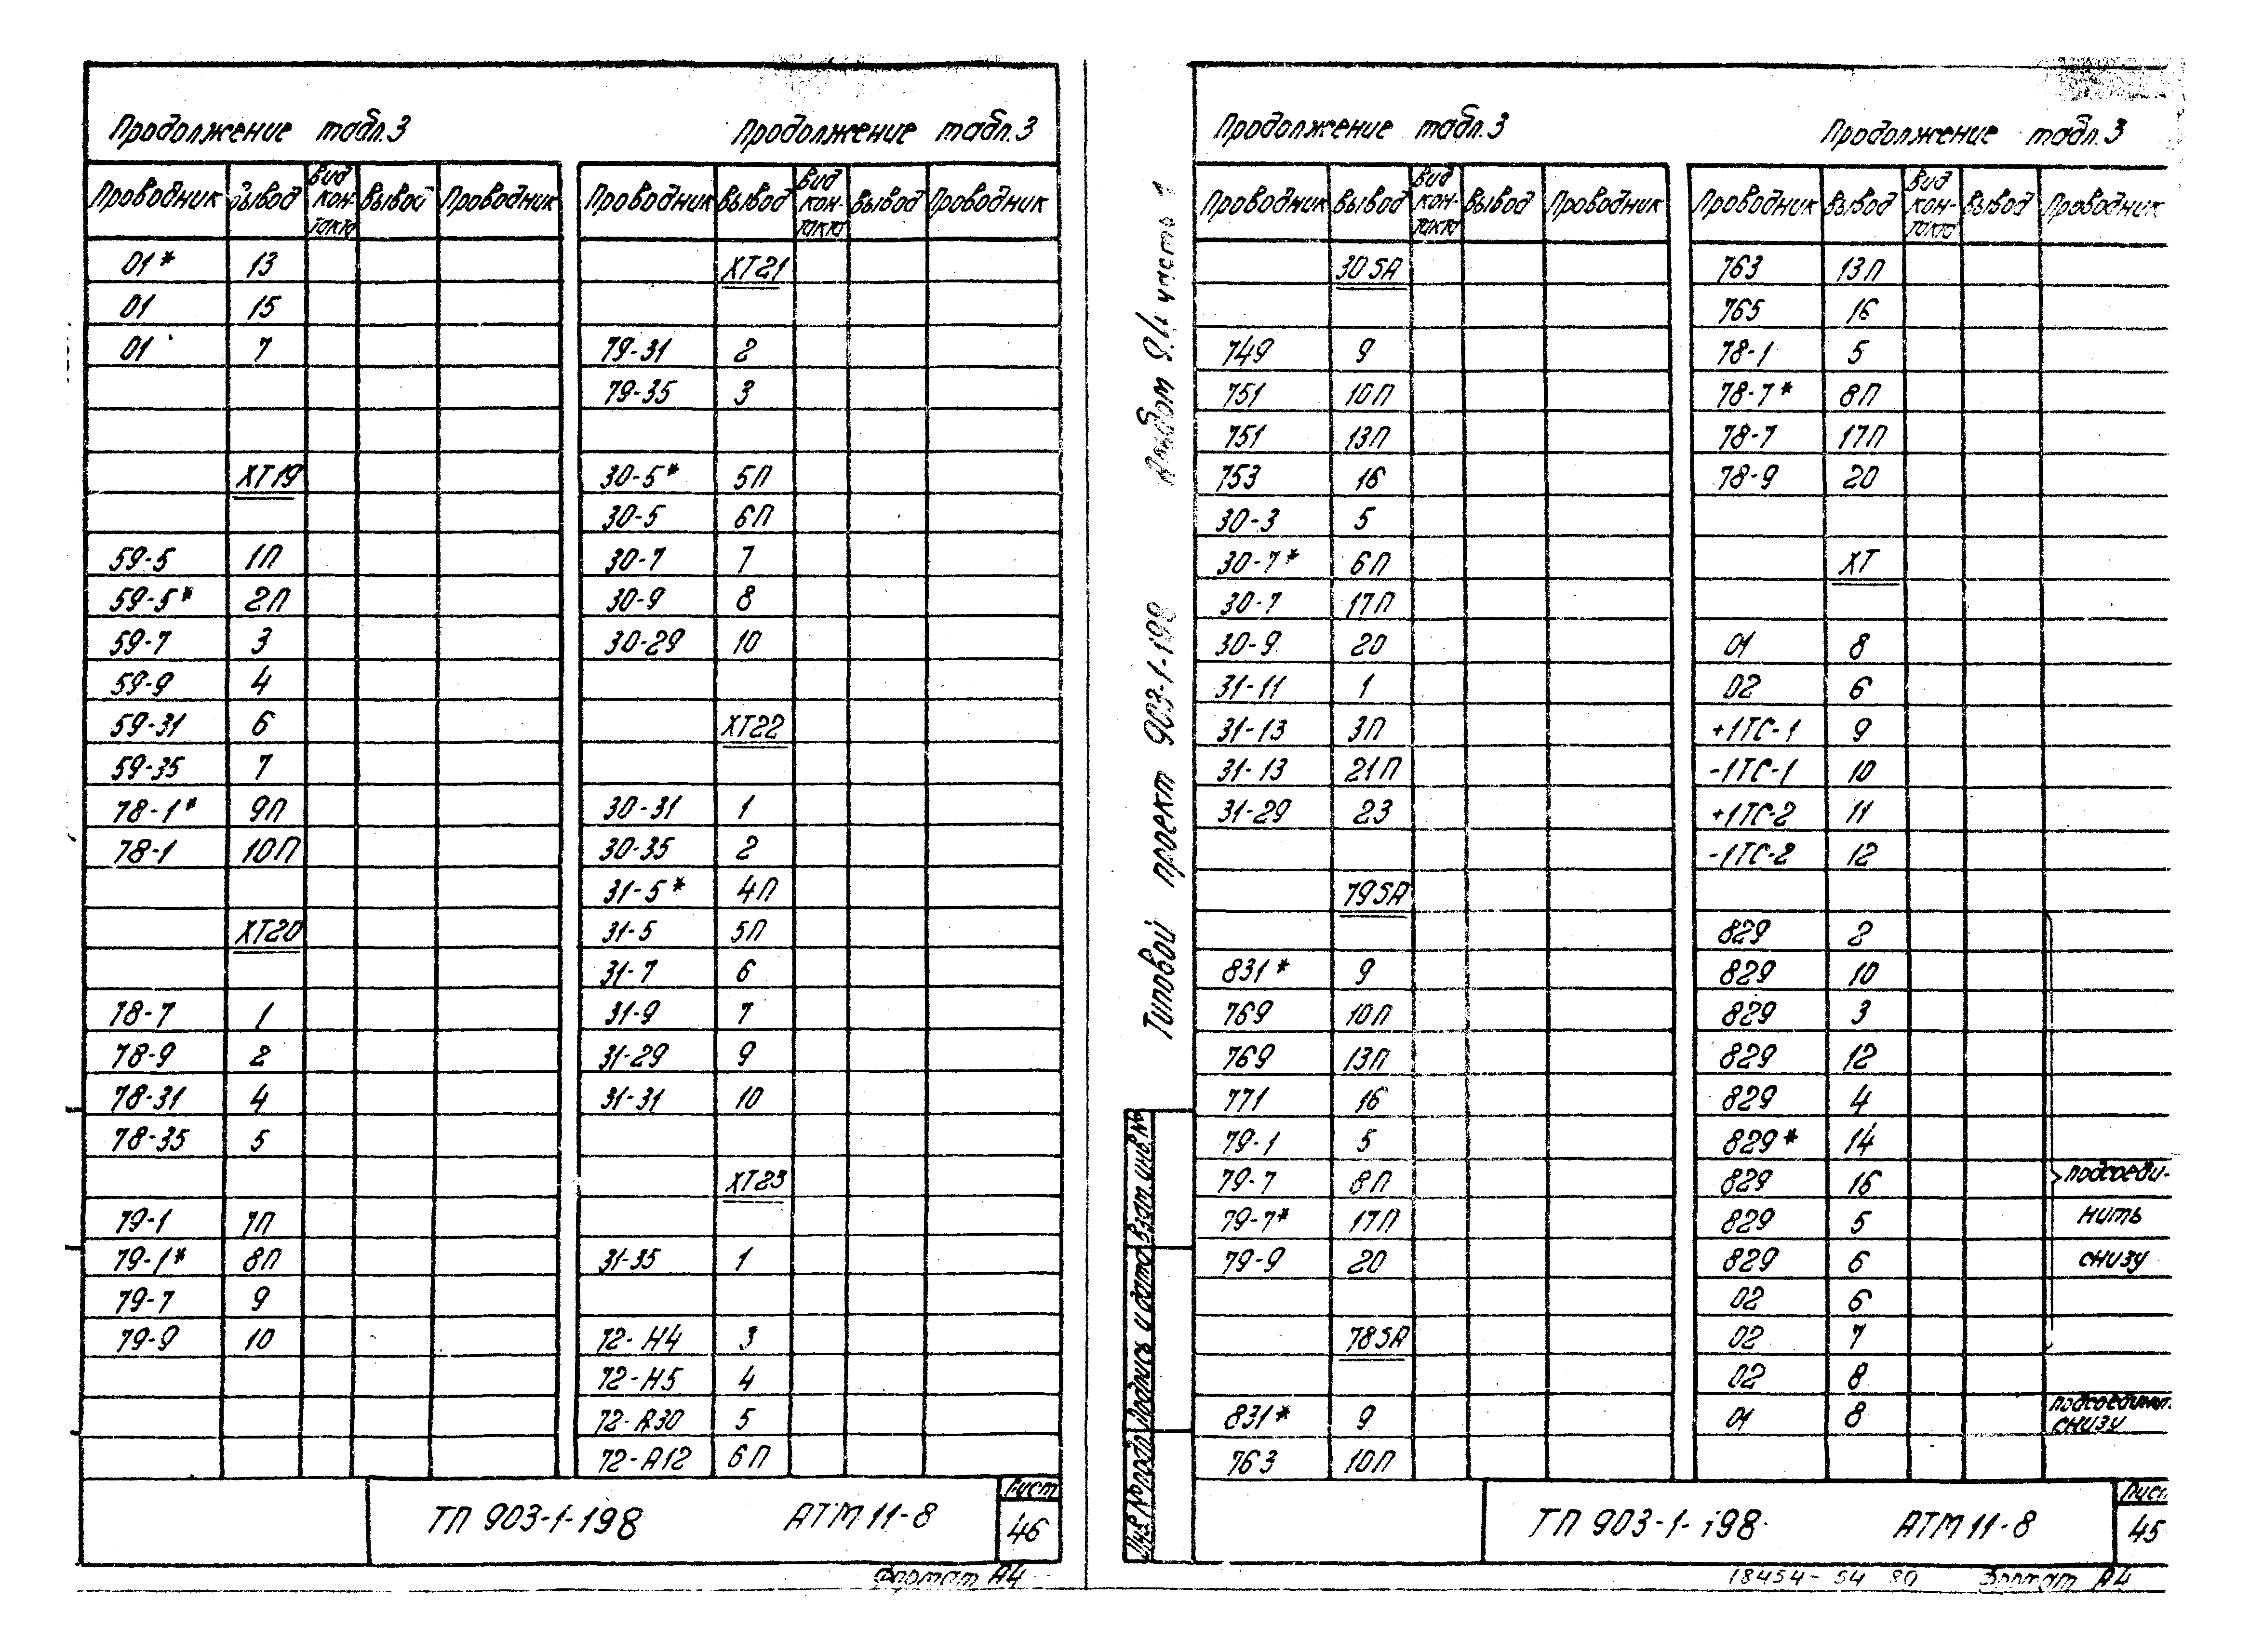 Продолжение табл.3
Проводник Вывод Вид кон- такта Вывод Проводник
01* 13
01 15
01 7
ХТ19
59-5 1П
59-5* 2П
59-7 3
59-9 4
59-31 6
59-35 7
78-1* 9П
78-1 10П
ХТ20
78-7 1
78-9 2
78-31 4
78-35 5
79-1 7П
79-1* 8П
79-7 9
79-9 10
Продолжение табл.3
Проводник Вывод Вид кон- такта Вывод Проводник
ХТ21
79-31 2
79-35 3
30-5* 5П
30-5 6П
30-7 7
30-9 8
30-29 10
ХТ22
30-31 1
30-35 2
31-5* 4П
31-5 5П
31-7 6
31-9 7
31-29 9
31-31 10
ХТ23
31-35 1
72-Н4 3
72-Н5 4
72-А30 5
72-А12 6П
ТП 903-1-198 АТМ 11-8
Лист
46
Формат А4
Типовой проект 903-1-198 Альбом 9.4 часть 1
Взам. инв.№
Подпись и дата
Инв.№ подл.
Продолжение табл.3
Проводник Вывод Вид кон- такта Вывод Проводник
30SA
749 9
751 10П
751 13П
753 16
30-3 5
30-7* 6П
30-7 17П
30-9 20
31-11 1
31-13 3П
31-13 21П
31-29 23
79SA
831* 9
769 10П
769 13П
771 16
79-1 5
79-7 8П
79-7* 17П
79-9 20
78SA
831* 9
763 10П
Продолжение табл.3
Проводник Вывод Вид кон- такта Вывод Проводник
763 13П
765 16
78-1 5
78-7* 8П
78-7 17П
78-9 20
ХТ
01 8
02 6
+1ТС-1 9
-1ТС-1 10
+1ТС-2 11
-1ТС-2 12
829 2
829 10
829 3
829 12
829 4
829* 14
829 16 подсоеди-
829 5 нить
829 6 снизу
02 6
02 7
02 8
01 8 подсоединит. снизу
ТП 903-1-198 АТМ 11-8
Лист
45
18454-54 80 Формат А4